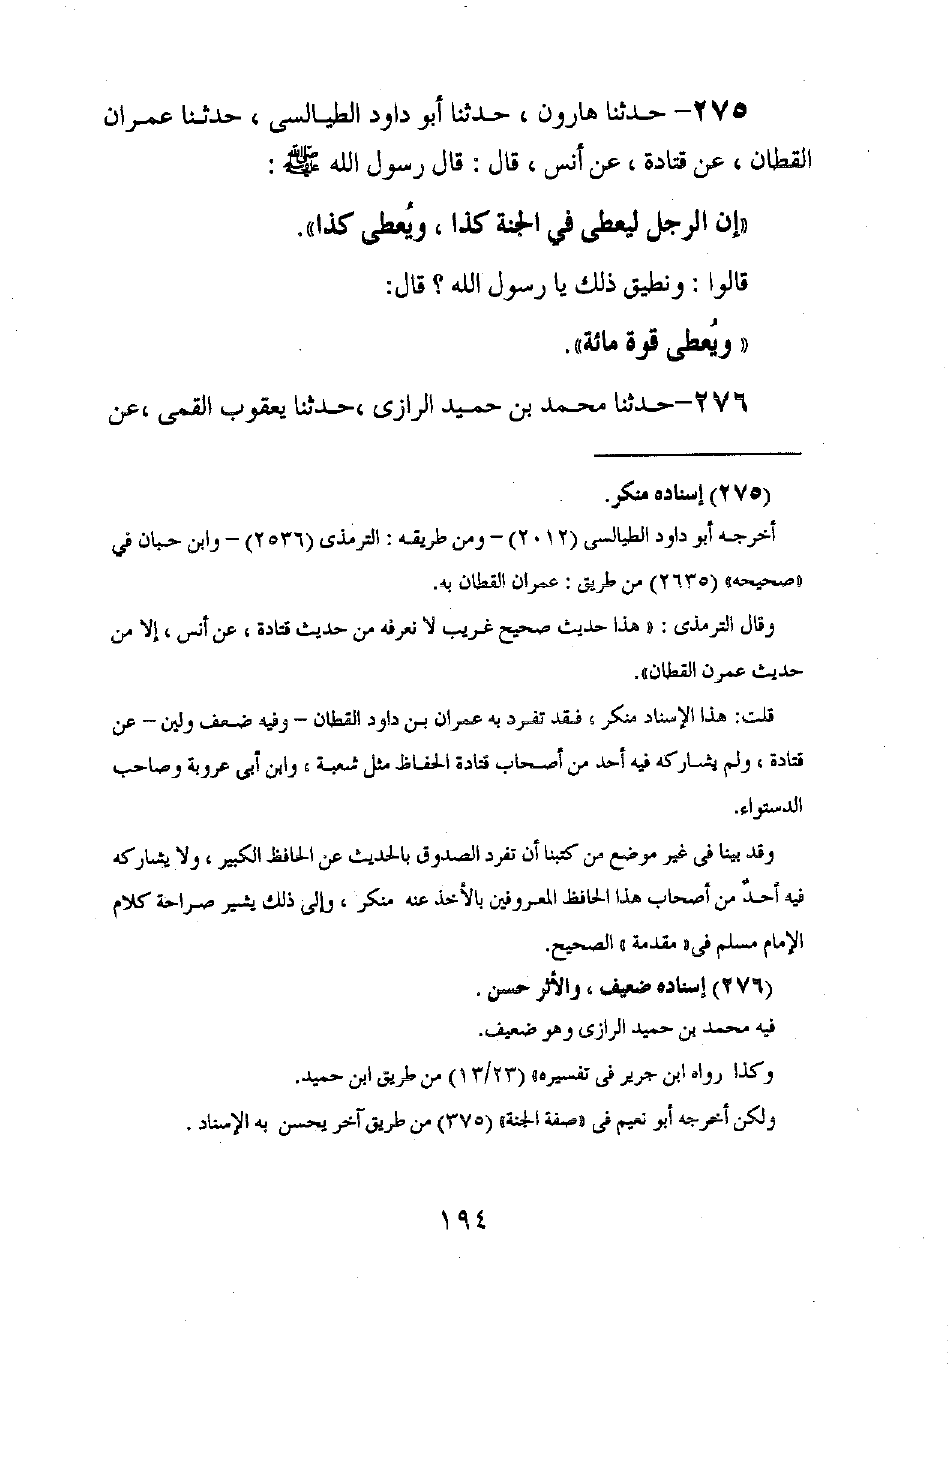 ٢٧٥- حدثنا هارون ، حدثنا أبو داود الطيالسى ، حدثنا عمران
القطان ، عن قتادة ، عن أنس ، قال : قال رسول الله ﷺ :
«إن الرجل ليعطى في الجنة كذا ، ويُعطى كذا».
قالوا : ونطيق ذلك يا رسول الله ؟ قال:
« ويُعطى قوة مائة».
٢٧٦-حدثنا محمد بن حميد الرازى ،حدثنا يعقوب القمى ،عن
(٢٧٥) إسناده منكر.
أخرجه أبو داود الطيالسى (٢٠١٢)- ومن طريقه : الترمذى (٢٥٣٦)- وابن حبان في
«صحيحه» (٢٦٣٥) من طريق : عمران القطان به.
وقال الترمذى : « هذا حديث صحيح غريب لا نعرفه من حديث قتادة ، عن أنس ، إلا من
حديث عمرن القطان».
قلت: هذا الإسناد منكر ، فقد تفرد به عمران بن داود القطان - وفيه ضعف ولين - عن
قتادة ، ولم يشاركه فيه أحد من أصحاب قتادة الحفاظ مثل شعبة ، وابن أبى عروبة وصاحب
الدستواء.
وقد بينا فى غير موضع من كتبنا أن تفرد الصدوق بالحديث عن الحافظ الكبير ، ولا يشاركه
فيه أحدٌ من أصحاب هذا الحافظ المعروفين بالأخذ عنه منكر ، وإلى ذلك يشير صراحة كلام
الإمام مسلم فى« مقدمة » الصحيح.
(٢٧٦) إسناده ضعيف ، والأثر حسن .
فيه محمد بن حميد الرازى وهو ضعيف.
وكذا رواه ابن جرير فى تفسيره» (١٣/٢٣) من طريق ابن حميد.
ولكن أخرجه أبو نعيم فى «صفة الجنة» (٣٧٥) من طريق آخر يحسن به الإسناد .
١٩٤